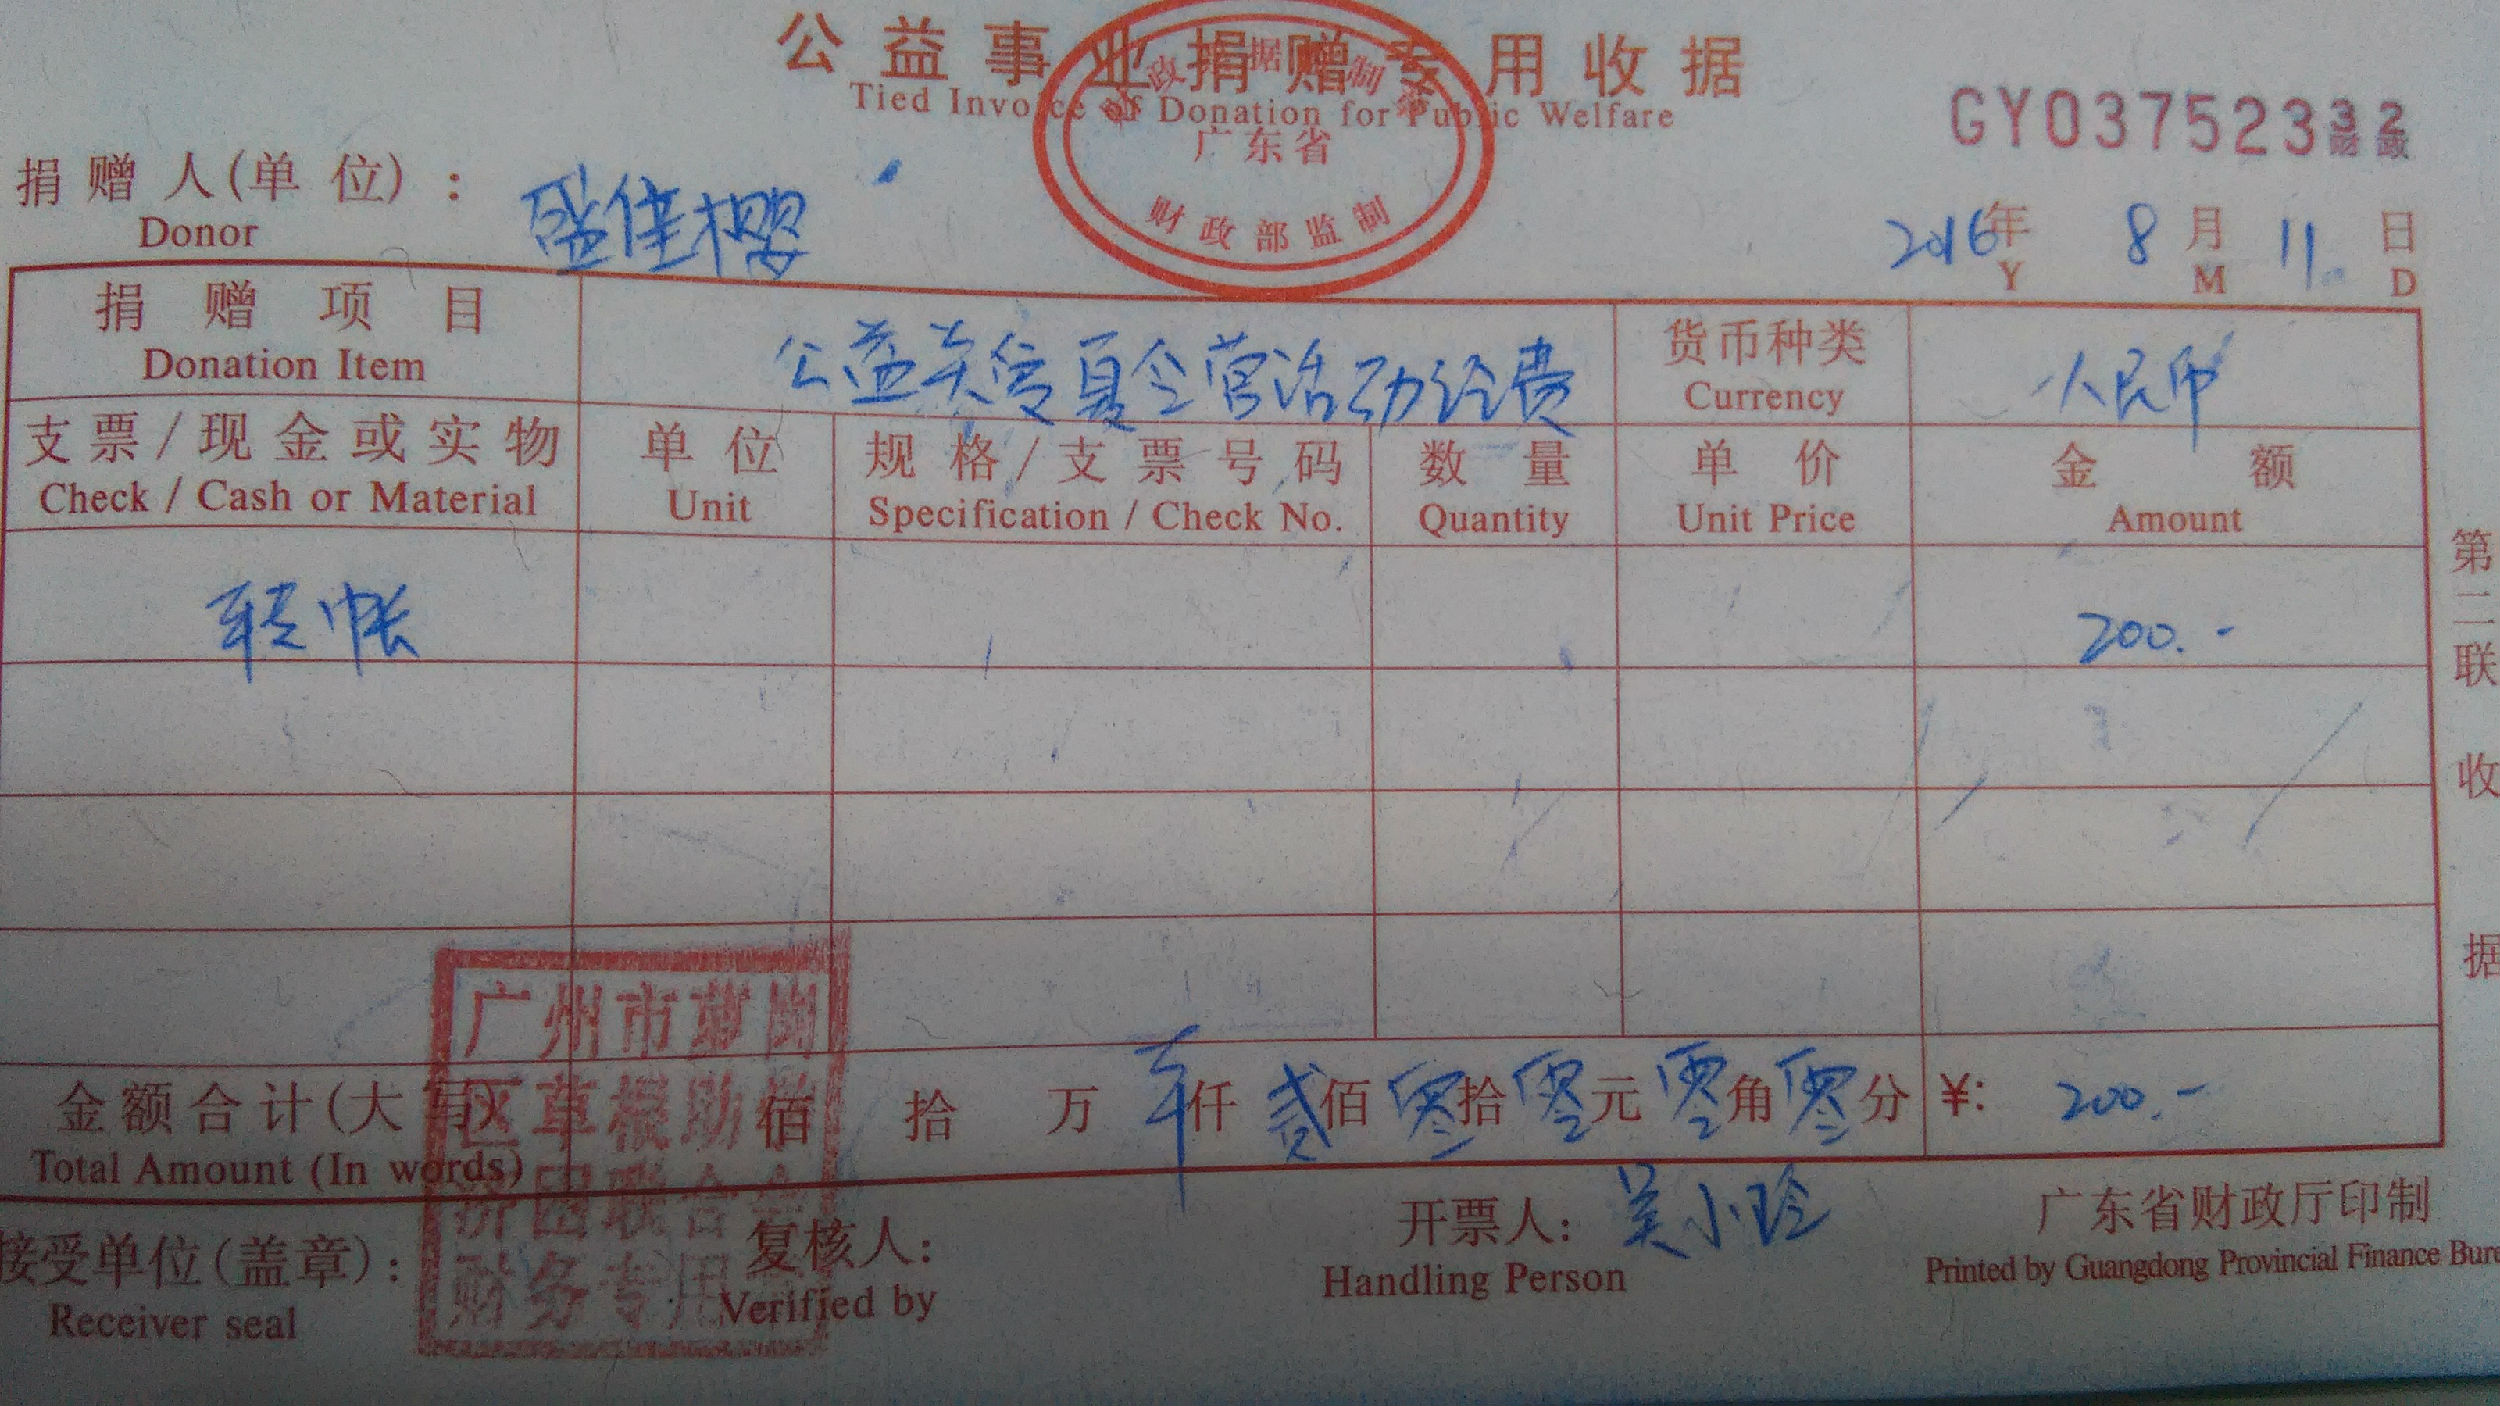 公益事业捐赠专用收据
Tied Invoice of Donation for Public Welfare
财政票据监制章
广东省
财政部监制
GY03752332
财政
捐赠人(单位): 盛佳樱
Donor
2016年 8月 11日
Y M D
捐赠项目 公益关爱夏令营活动经费 货币种类 人民币
Donation Item Currency
支票/现金或实物 单位 规格/支票号码 数量 单价 金额
Check / Cash or Material Unit Specification / Check No. Quantity Unit Price Amount
转帐 200.-
金额合计(大写) 佰 拾 万 仟 贰佰零拾零元零角零分 ¥: 200.-
Total Amount (In words)
广州市萝岗
区草根助微
济困联合会
财务专用
接受单位(盖章): 复核人: 开票人: 吴小玲 广东省财政厅印制
Receiver seal Verified by Handling Person Printed by Guangdong Provincial Finance Bure
第二联 收据